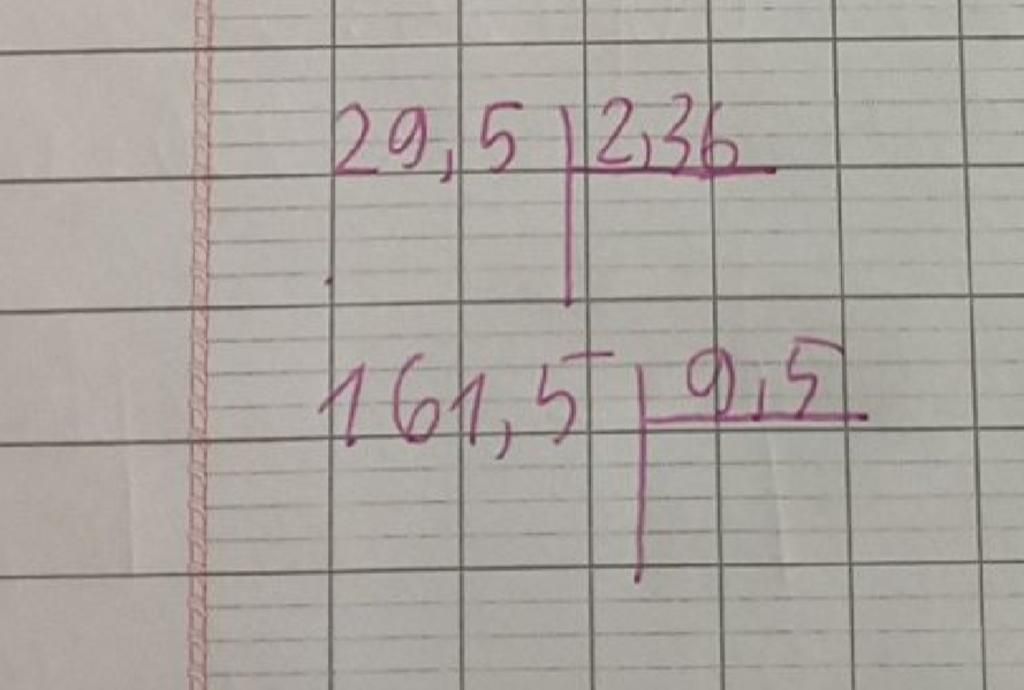 29,5 2,36
161,5 9,5